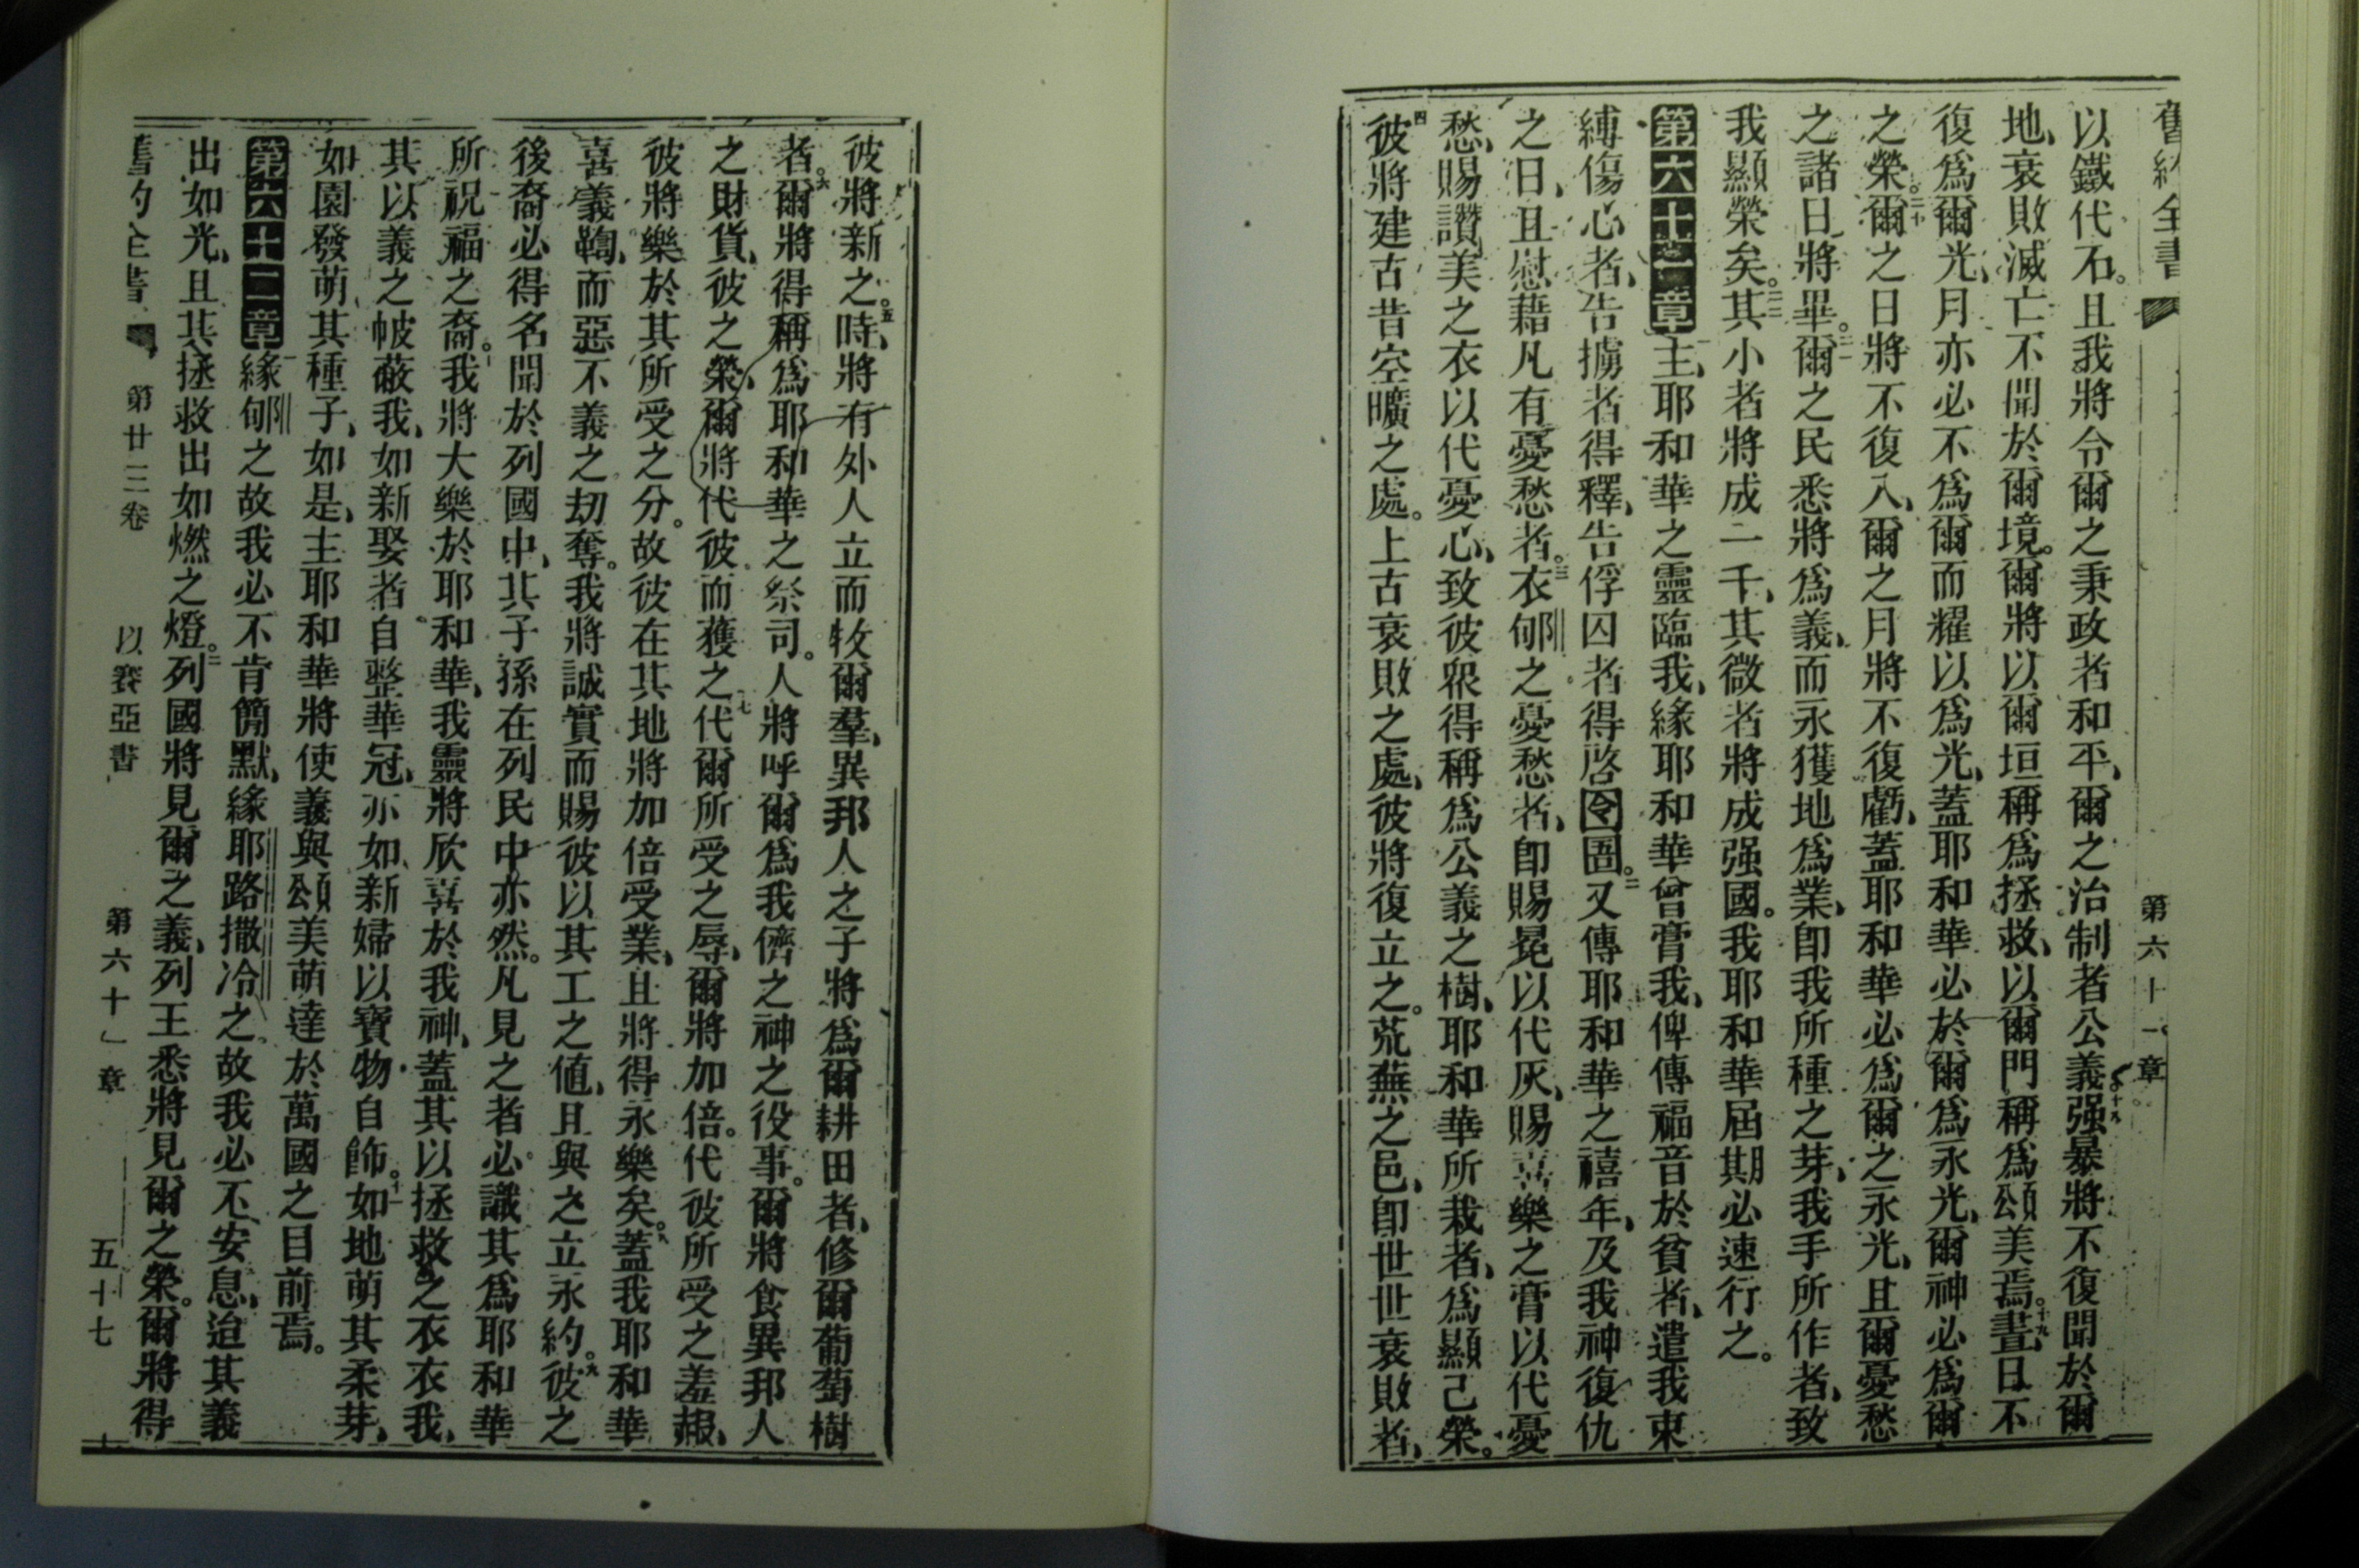 舊約全書 第六十一章
以鐵代石。且我將令爾之秉政者和平、爾之治制者公義。十八强暴將不復聞於爾
地、衰敗滅亡不聞於爾境。爾將以爾垣稱爲拯救、以爾門稱爲頌美焉。十九晝、日不
復爲爾光、月亦必不爲爾而耀以爲光、蓋耶和華必於爾爲永光、爾神必爲爾
之榮。二十爾之日將不復入、爾之月將不復虧、蓋耶和華必爲爾之永光、且爾憂愁
之諸日將畢。二一爾之民悉將爲義、而永獲地爲業、卽我所種之芽、我手所作者、致
我顯榮矣。二二其小者將成一千、其微者將成强國。我耶和華屆期必速行之。
第六十一章 一主耶和華之靈臨我、緣耶和華曾膏我、俾傳福音於貧者、遣我束
縛傷心者、告擄者得釋、告俘囚者得啓囹圄。二又傳耶和華之禧年、及我神復仇
之日、且慰藉凡有憂愁者。三衣郇之憂愁者、卽賜冕以代灰、賜喜樂之膏以代憂
愁、賜讚美之衣以代憂心、致彼衆得稱爲公義之樹、耶和華所栽者、爲顯己榮。
四彼將建古昔空曠之處。上古衰敗之處、彼將復立之。荒蕪之邑、卽世世衰敗者、
彼將新之。五時、將有外人立而牧爾羣、異邦人之子將爲爾耕田者、修爾葡萄樹
者。六爾將得稱爲耶和華之祭司。人將呼爾爲我儕之神之役事。爾將食異邦人
之財貨、彼之榮、爾將代彼而獲之。七代爾所受之辱、爾將加倍。代彼所受之羞赧、
彼將樂於其所受之分。故彼在其地將加倍受業、且將得永樂矣。八蓋我耶和華
喜義鞫、而惡不義之刧奪。我將誠實而賜彼以其工之値、且與之立永約。九彼之
後裔必得名聞於列國中、其子孫在列民中亦然。凡見之者必識其爲耶和華
所祝福之裔。十我將大樂於耶和華、我靈將欣喜於我神、蓋其以拯救之衣衣我、
其以義之帔蔽我、如新娶者自整華冠、亦如新婦以寶物自飾。十一如地萌其柔芽、
如園發萌其種子、如是、主耶和華將使義與頌美萌達於萬國之目前焉。
第六十二章 一緣郇之故我必不肯箇默、緣耶路撒冷之故我必不安息、迨其義
出如光、且其拯救出如燃之燈。二列國將見爾之義、列王悉將見爾之榮。爾將得
舊約全書 第廿三卷 以賽亞書 第六十一章 五十七